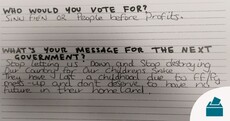 WHO WOULD YOU VOTE FOR?
SINN FEIN OR People before Profits.
WHAT'S YOUR MESSAGE FOR THE NEXT
GOVERNMENT?
Stop letting us Down and Stop destroying
Our Country for Our Childrens Sake
They have lost a childhood due to FF/FG
mess up and dont deserve to have no
future in their homeland